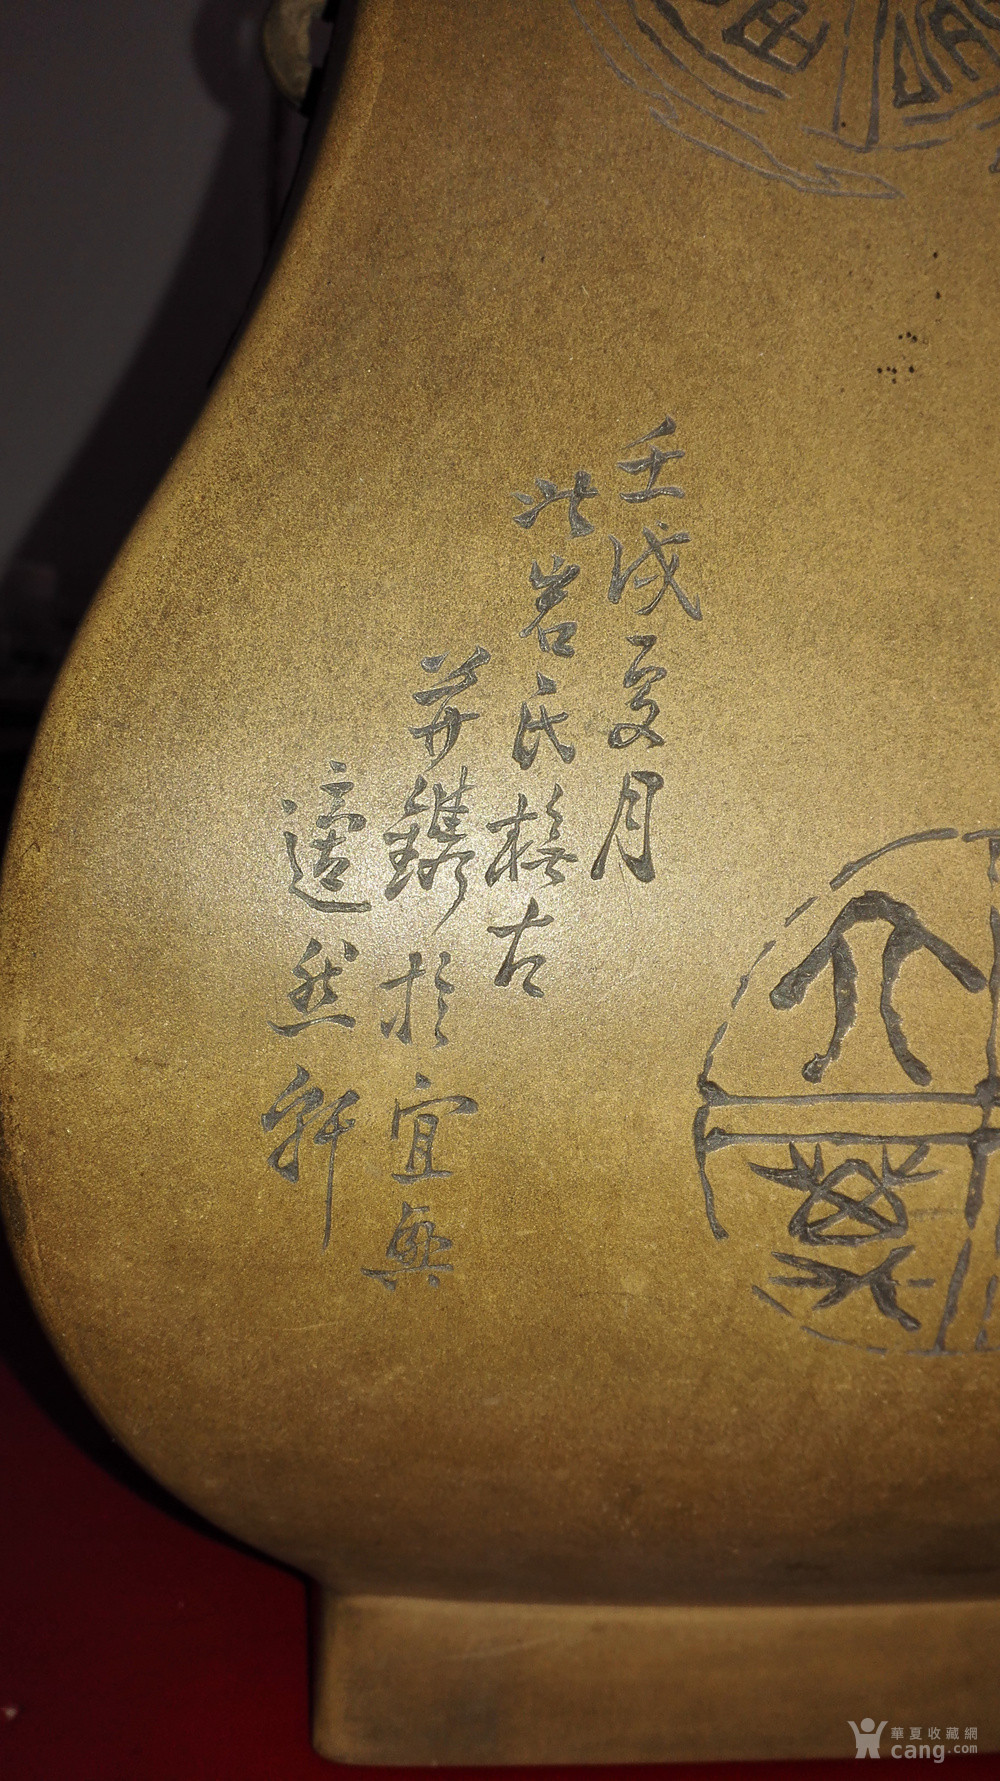 壬戌夏月
岩氏橅古
并鐫於宜興
適然軒
華夏收藏網
cang.com